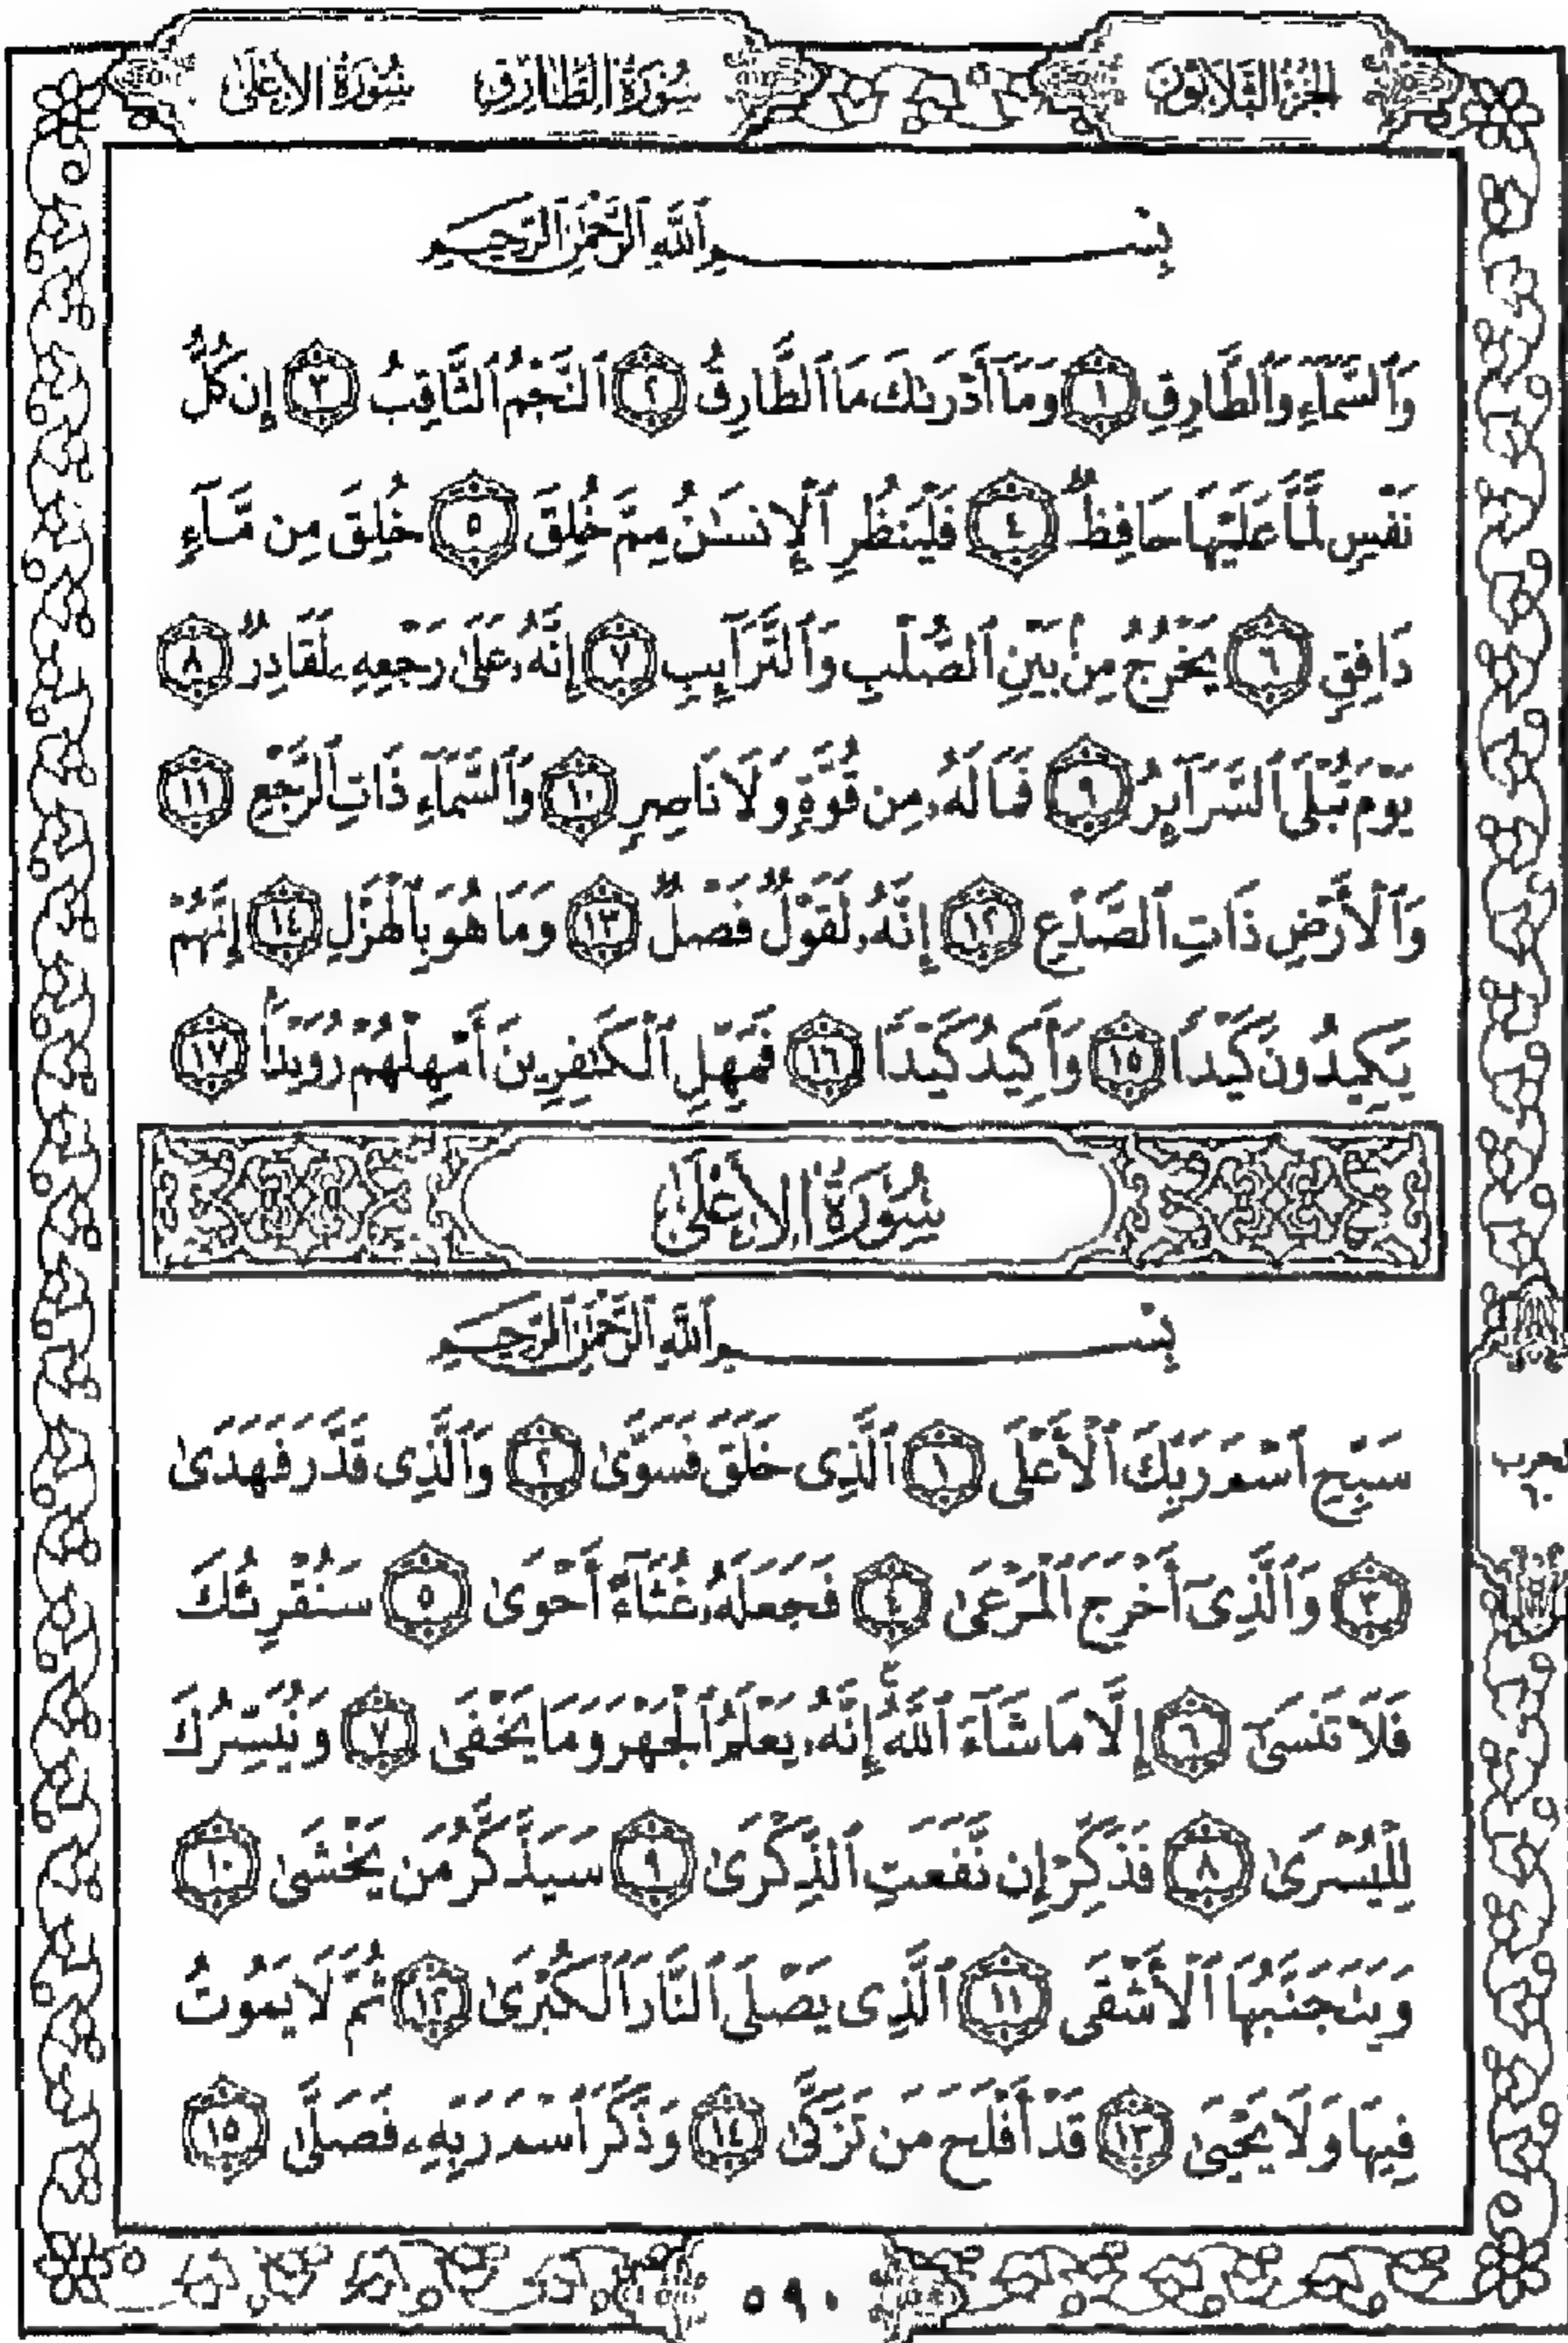 الجزء الثلاثون
سورة الطارق سورة الأعلى
بِسْمِ ٱللَّهِ ٱلرَّحْمَٰنِ ٱلرَّحِيمِ
وَٱلسَّمَآءِ وَٱلطَّارِقِ ١ وَمَآ أَدْرَىٰكَ مَا ٱلطَّارِقُ ٢ ٱلنَّجْمُ ٱلثَّاقِبُ ٣ إِن كُلُّ
نَفْسٍ لَّمَّا عَلَيْهَا حَافِظٌ ٤ فَلْيَنظُرِ ٱلْإِنسَٰنُ مِمَّ خُلِقَ ٥ خُلِقَ مِن مَّآءٍ
دَافِقٍ ٦ يَخْرُجُ مِنۢ بَيْنِ ٱلصُّلْبِ وَٱلتَّرَآئِبِ ٧ إِنَّهُۥ عَلَىٰ رَجْعِهِۦ لَقَادِرٌ ٨
يَوْمَ تُبْلَى ٱلسَّرَآئِرُ ٩ فَمَا لَهُۥ مِن قُوَّةٍ وَلَا نَاصِرٍ ١٠ وَٱلسَّمَآءِ ذَاتِ ٱلرَّجْعِ ١١
وَٱلْأَرْضِ ذَاتِ ٱلصَّدْعِ ١٢ إِنَّهُۥ لَقَوْلٌ فَصْلٌ ١٣ وَمَا هُوَ بِٱلْهَزْلِ ١٤ إِنَّهُمْ
يَكِيدُونَ كَيْدًا ١٥ وَأَكِيدُ كَيْدًا ١٦ فَمَهِّلِ ٱلْكَٰفِرِينَ أَمْهِلْهُمْ رُوَيْدًۢا ١٧
سورة الأعلى
بِسْمِ ٱللَّهِ ٱلرَّحْمَٰنِ ٱلرَّحِيمِ
سَبِّحِ ٱسْمَ رَبِّكَ ٱلْأَعْلَى ١ ٱلَّذِى خَلَقَ فَسَوَّىٰ ٢ وَٱلَّذِى قَدَّرَ فَهَدَىٰ
٣ وَٱلَّذِىٓ أَخْرَجَ ٱلْمَرْعَىٰ ٤ فَجَعَلَهُۥ غُثَآءً أَحْوَىٰ ٥ سَنُقْرِئُكَ
فَلَا تَنسَىٰٓ ٦ إِلَّا مَا شَآءَ ٱللَّهُ ۚ إِنَّهُۥ يَعْلَمُ ٱلْجَهْرَ وَمَا يَخْفَىٰ ٧ وَنُيَسِّرُكَ
لِلْيُسْرَىٰ ٨ فَذَكِّرْ إِن نَّفَعَتِ ٱلذِّكْرَىٰ ٩ سَيَذَّكَّرُ مَن يَخْشَىٰ ١٠
وَيَتَجَنَّبُهَا ٱلْأَشْقَى ١١ ٱلَّذِى يَصْلَى ٱلنَّارَ ٱلْكُبْرَىٰ ١٢ ثُمَّ لَا يَمُوتُ
فِيهَا وَلَا يَحْيَىٰ ١٣ قَدْ أَفْلَحَ مَن تَزَكَّىٰ ١٤ وَذَكَرَ ٱسْمَ رَبِّهِۦ فَصَلَّىٰ ١٥
الحزب
٦٠
٥٩٠